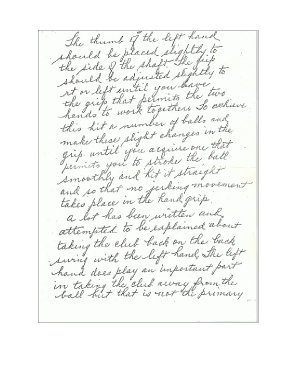 The thumb of the left hand
should be placed slightly to
the side of the shaft. The grip
should be adjusted slightly to
rt or left until you have
the grip that permits the two
hands to work together. To achieve
this hit a number of balls and
make these slight changes in the
grip until you acquire one that
permits you to stroke the ball
smoothly and hit it straight
and so that no jerking movement
takes place in the hand grip.
A lot has been written and
attempted to be explained about
taking the club back on the back
swing with the left hand. The left
hand does play an important part
in taking the club away from the
ball but that is not the primary